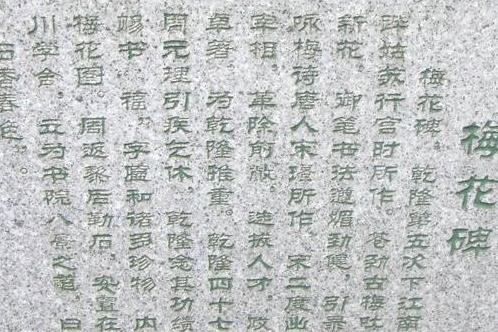 梅花碑
梅花碑。乾隆第五次下江南
跸姑苏行宫时所作。苍劲古梅吐
新花 御笔书法遒媚劲健。引录
咏梅诗唐人宋璟所作。宋二度出
宰相。革除前敝。选拔人才。政
草著 为乾隆推重。乾隆四十七
周元理引疾乞休。乾隆念其功绩
赐书 福。字匾和诸多珍物 内
梅花图。周返黎后勒石 奂置在
川学舍。立为书院八景之首。曰
古香春